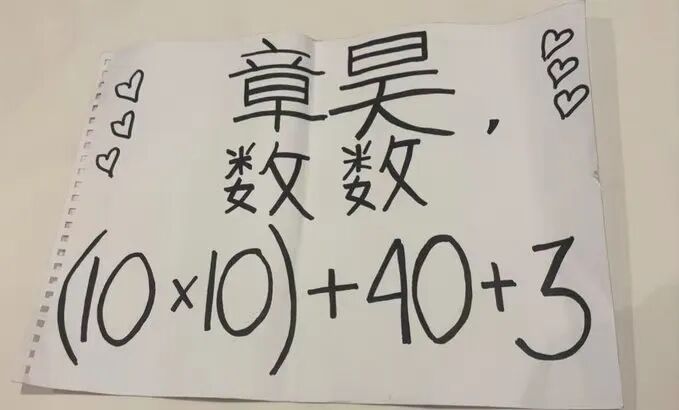 章昊,
数数
(10×10)+40+3